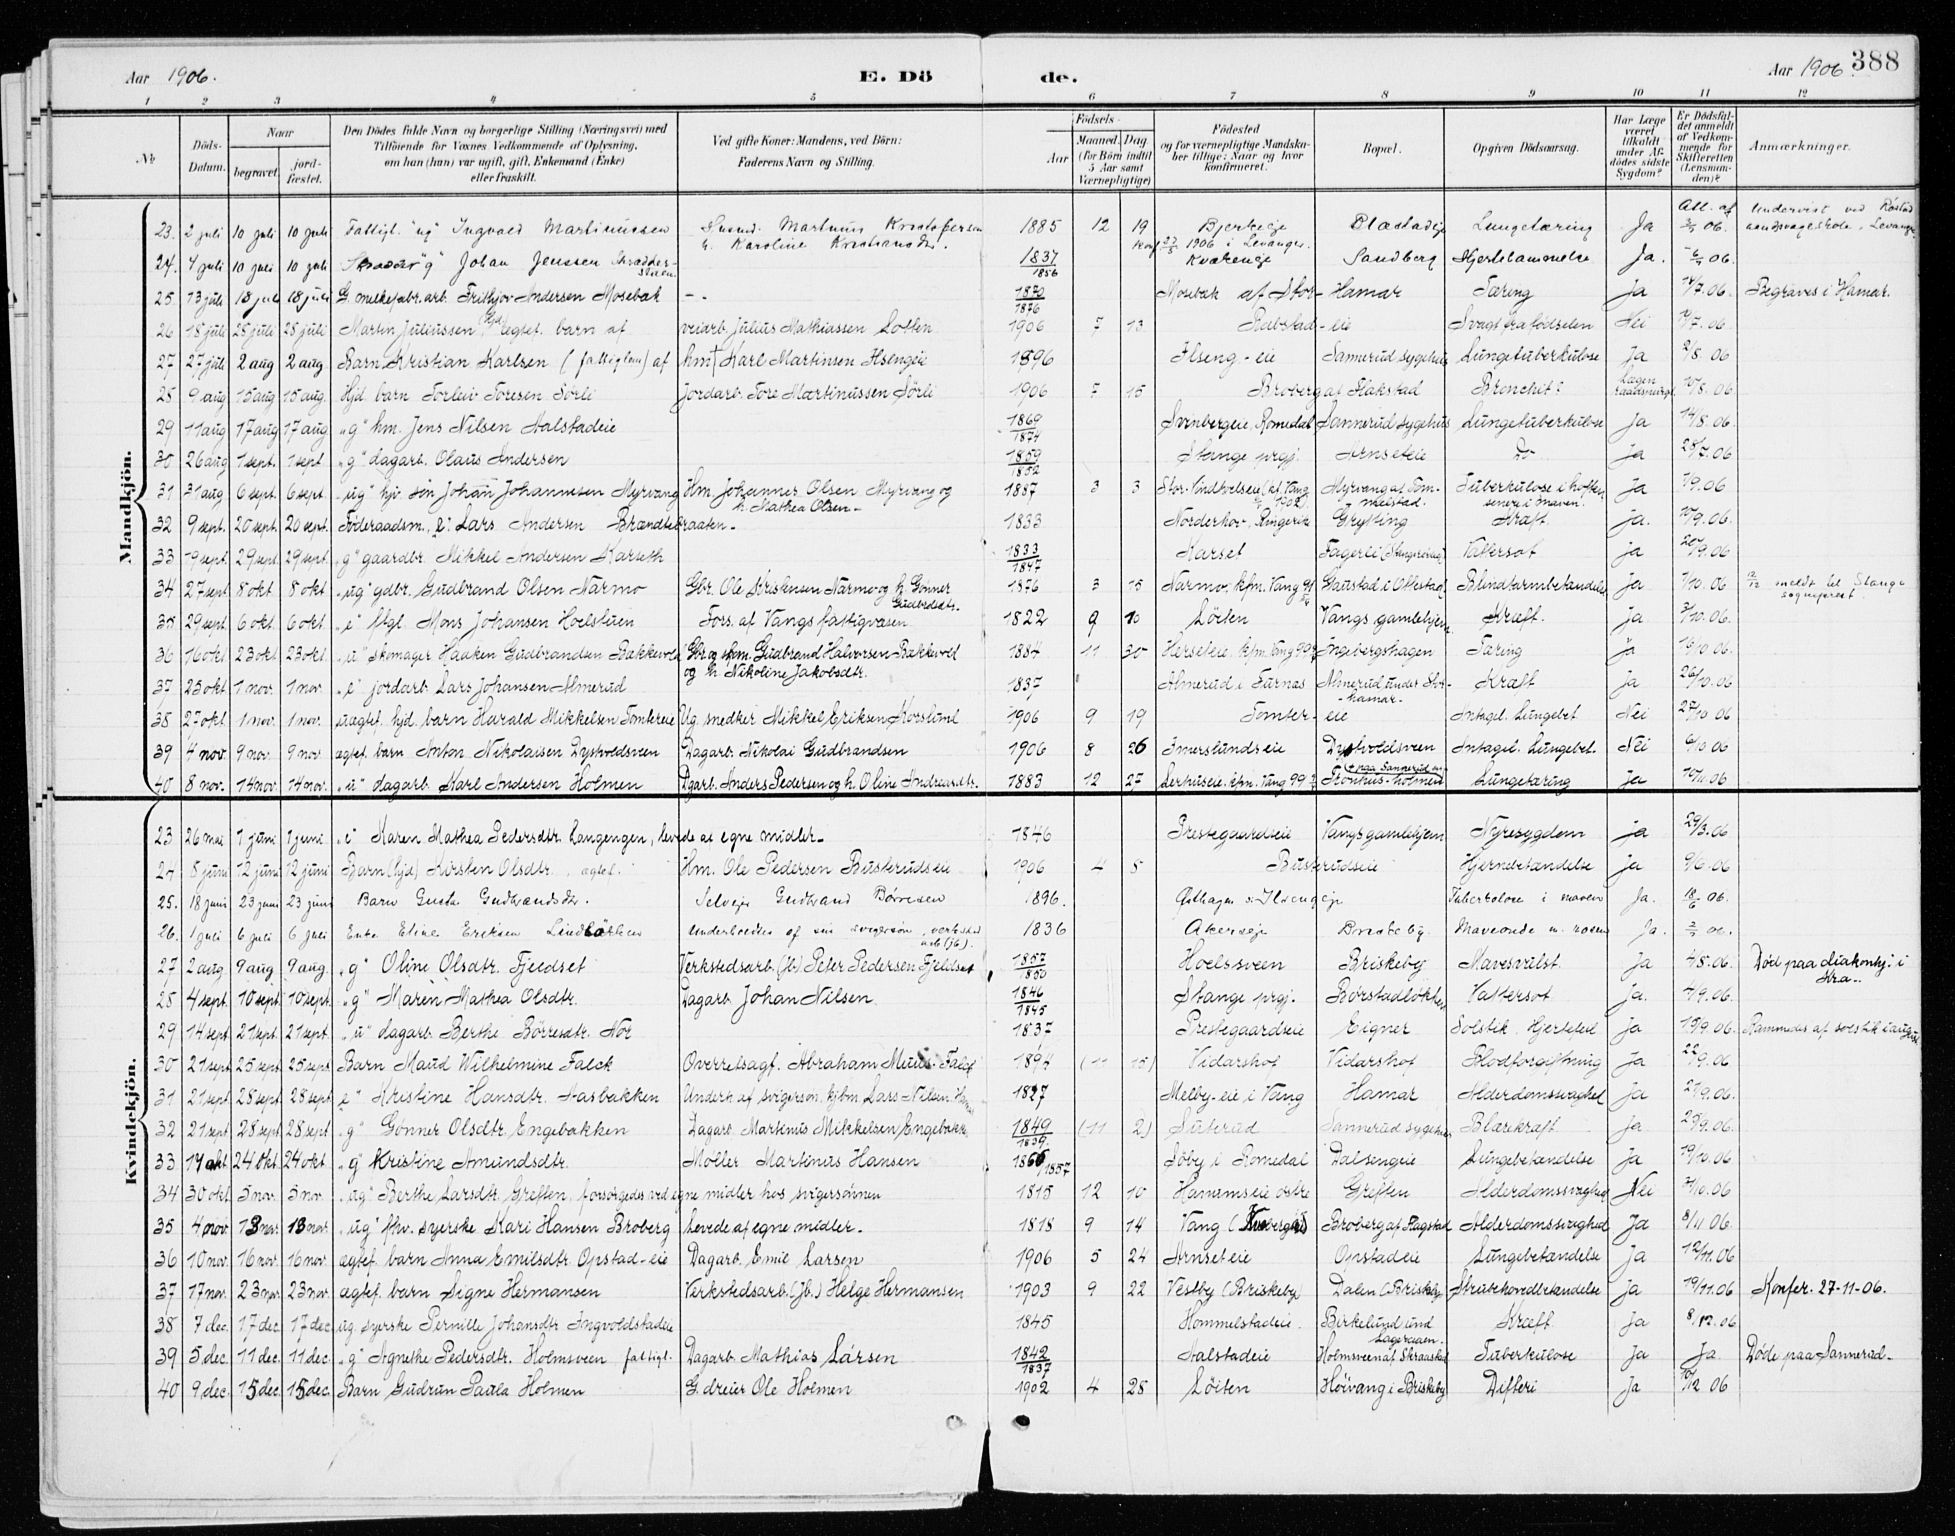 Aar 1906.
E. Dö
de.
Aar 1906.
388
1 2 3 4 5 6 7 8 9 10 11 12
No
Döds-Datum.
Naar
begravet.
jord-fæstet.
Den Dödes fulde Navn og borgerlige Stilling (Næringsvei) med
Tilföiende for Voxnes Vedkommende af Oplysning,
om han (hun) var ugift, gift, Enkemand (Enke)
eller fraskilt.
Ved gifte Koner: Mandens, ved Börn:
Faderens Navn og Stilling.
Födsels-
Aar
Maaned. Dag
(for Börn indtil
5 Aar samt
Værnepligtige)
Födested
og for værnepligtige Mandska-
ber tillige: Naar og hvor
konfirmeret.
Bopæl.
Opgiven Dödsaarsag.
Har Læge
været
tilkaldt
under Af-
dödes sidste
Sygdom?
Er Dödsfal-
det anmeldt
af Vedkom-
mende for
Skifteretten
(Lensman-
den)?
Anmærkninger.
Mandkjön.
23. 2 juli 10 juli 10 juli Fattigl. "ug" Ingvald Martinussen Martinus Kristofersen 1885 12 19 Bjerkeeje Blæstadeje Lungetæring Ja Att. af 06. Undervist ved Røstad
h. Karoline konf 1906 i Levanger. aandssvageskole, Levanger
24. 4 juli 10 juli 10 juli Skrædder "g" Johan Jenssen Skrædder-stuen 1837/1856 Kværkeneje Sandberg Hjertelammelse Ja. 06.
25. 13 juli 18 juli 18 juli G. melkefabr.arb. Frithjov Andersen Mosebæk - - 1870/1876 Mosebæk af Stor-Hamar Tæring Ja 14/7.06. Begraves i Hamar.
26 18 juli 28 juli 28 juli Martin Juliussen hjd. ægtef. barn af veiarb. Julius Mathiassen Lotten 1906 7 13 Rabstad-eie Svagt fra fødselen Nei 7.06.
27 27 juli 2 aug 2 aug Barn Kristian Karlsen (fattiglem) af hmt Karl Martinsen Ilsengeie 1896 Ilseng-eie Sannerud sygehus Lungetuberkulose Ja 2/8.06
28 9 aug 15 aug 15 aug. Hjd. barn Torleiv Toresen Sörli Jordarb. Tore Martinussen Sörli 1906 7 15 Broberg af Flakstad Bronchit? Lægen raadspurgt. 10/8.06.
29 11 aug 17 aug 17 aug "g" hm. Jens Nilsen Aalstadeie 1869/1874 Svinbergeie, Romedal Sannerud sygehus Lungetuberkulose Ja 14/8.06.
30 26 aug 1 sept. 1 sept. "g" dagarb. Olaus Andersen 1859/1852 Stange prgj. Arnseteie Do Ja 28/7.06
31 31 aug 6 sept. 6 sept. "ug" hjv. sön Johan Johannesen Myrvang Hm. Johannes Olsen Myrvang og 1887 3 3 Stor-Vindholseie (kf. Vang Myrvang af Tom- Tuberkulose i hoften Ja 1/9.06
h. Mathea Olsen- 1902) melstad. senere i maven.
32 9 sept. 20 sept. 20 sept. Föderaadsm. "e" Lars Andersen Brændte-braaten- 1833 Norderhov, Ringerike Grytting Kræft ja. 10/9.06.
33 19 sept. 29 sept. 29 sept. "g" gaardbr. Mikkel Andersen Karseth 1833/1847 Karset Fagerli (Stangesveg) Vattersot ja 20/9.06
34 27 sept 8 okt 8 okt "ug" gdbr. Gudbrand Olsen Narmo Gbr. Ole Kristensen Narmo og h. Gønner 1876 3 15 Narmo, kfm. Vang Gaustad i Ottestad Blindtarmbetændelse Ja 1/10.06 meldt til Stange
Gudbrdsdtr. sogneprest.
35 29 sept. 6 okt. 6 okt. "e" ftgl. Mons Johansen Hoelstuen Fors. af Vangs fattigvæsen 1822 9 10 Löiten Vangs gamlehjem Kræft. Ja 3/10.06.
36 16 okt 23 okt. 23 okt. "u" skomager Haaken Gudbrandsen Bakkevold Gbr. og skom. Gudbrand Halvorsen Bakkevold 1884 11 30 Herseteie. kfm. Vang 99 Ingebergshagen Tæring Ja 19/10 06
og h. Nikoline Jakobsdtr.
37 25 okt 1 nov. 1 nov. "e" jordarb. Lars Johansen Almerud 1837 Almerud i Furnæs Almerud under Stor-hamar- Kræft Ja 26/10.06
38 27 okt. 1 nov. 1 nov. uægtef. hjd. barn Harald Mikkelsen Tomtereie Ug. snedker Mikkel Eriksen Korslund 1906 9 19 Tomter-eie Antagel. Lungebet Nei 27/10 06
39 4 nov. 9 nov. 9 nov. ægtef. barn Anton Nikolaisen Dystvoldsveen Dagarb. Nikolai Gudbrandsen 1906 8 26 Imerslundseie Dystvoldsveen Antagel. Lungebet. Nei 06
40 8 nov. 14 nov. 14 nov. "u" dagarb. Karl Andersen Holmen Dgarb. Anders Pedersen og h. Oline Andreasdtr. 1883 12 27 Lerhuseie. kfm. Vang 99 (+ paa Sannerud Stenhus-holmen Lungetæring Ja 10/11.06
Kvindekjön.
23 26 mai 1 juni 1 juni "e" Karen Mathea Pedersdtr. Langengen, levede af egne midler- 1846 Prestegaardseie Vangs gamlehjem Nyresygdom ja 29/3.06
24 8 juni 12 juni 12 juni Barn (hjd) Kirsten Olsdtr. ægtef. Hm. Ole Pedersen Busterudseie 1906 4 5 Busterudseie Hjernebetændelse ja 9/6.06
25. 18 juni 23 juni 23 juni Barn Gusta Gudbrandsdtr. Selveje Gudbrand Børresen 1896. Østhagen v. Ilsengeje Tuberkolose i maven Ja. 18/6 06.
26. 1 juli 6 juli 6 juli Enke Eline Eriksen Lindløkken Underholdtes af sin svigersøn, verksted arb (jb). 1836 Akerseje Briskeby. Maveonde m. rosen Ja. 06.
27 2 aug 9 aug. 9 aug. "g" Oline Olsdtr. Fjeldset Verkstedsarb. (jb) Peter Pedersen Fjeldset 1857/1850 Hoelssveen Briskeby Mavesvulst. Ja 4/8.06. Død paa diakonhj. i Kra-
28 4 sept. 10 sept. 10 sept. "g" Maren Mathea Olsdtr. Dagarb. Johan Nilsen 1846/1845 Stange prgj. Børstadløkken Vattersot Ja. 4/9.06.
29 14 sept. 21 sept. 21 sept. "u" dagarb. Berthe Börresdtr. Nor 1837 Prestegaardseie Eigner Solstik. Hjertefeil ja 15/9.06. Rammedes af solstik i august
30 21 sept 25 sept 25 sept Barn Maud Wilhelmine Falck Overretssagf. Abraham Falck 1894 (11 15) Vidarshof Vidarshof Blodforgiftning Ja 22/9.06
31 21 sept 28 sept 28 sept "e" Kristine Hansdtr. Aasbakken Underh. af svigersøn. kjbm. Lars Nilsen. 1827 Melby-eie i Vang Hamar Alderdomssvaghed Ja 21/9.06.
32 21 sept 28 sept 28 sept "g" Gønner Olsdtr. Engebakken Dagarb. Martinus Mikkelsen Engebakken 1849/1839. (11 2) Suterud Sannerud sygehus Blærekræft Ja 25/9.06.
33 17 okt 24 okt. 24 okt "g" Kristine Amundsdtr. Møller Martinus Hansen 1866/1857 Søby i Romedal Dalsengeie Lungebetændelse Ja 19/10.06
34 30 okt 5 nov. 5 nov. "ug" Berthe Larsdtr. Greften, forsørgedes ved egne midler hos svigersønnen 1815 12 10 Hammseie østre Greften Alderdomssvaghed Nei 06
35 4 nov 13 nov. 13 nov. "ug" fhv. syerske Kari Hansen Broberg Levede af egne midler- 1818 9 14 Vang Broberg af Flagstad Alderdomssvaghed Ja 8/11 06.
36 10 nov. 16 nov. 16 nov. ægtef. barn Anna Emilsdtr. Opstad-eie Dagarb. Emil Larsen 1906 5 24 Arnseteie Opstadeie Lungebetændelse Ja 12/11.06
37 17 nov. 23 nov. 23 nov. ægtef. barn Signe Hermansen Verkstedsarb. (Jb.) Helge Hermansen 1903 9 22 Vestby (Briskeby) Dalen (Briskeby) Strubehovedbetændelse Ja 19/11.06 Konfer. 27-11-06.
38 7 dec. 17 dec. 17 dec. ug. syerske Pernille Johansdtr Ingvoldstadeie 1845 Hommelstadeie Birkelund und Lageraaen. Kræft Ja 8/12.06
39 5 dec. 11 dec. 11 dec. "g" Agnethe Pedersdtr. Holmsveen fattigl. Dagarb. Mathias Larsen 1842/1837 Aalstadeie Holmsveen af Skraastad Tuberkulose Ja Ja Døde paa Sannerud-
40 9 dec. 15 dec. 15 dec. Barn Gudrun Paula Holmen G. dreier Ole Holmen 1902 4 28 Löiten Höivang i Briskeby Difteri Ja 10/12 06